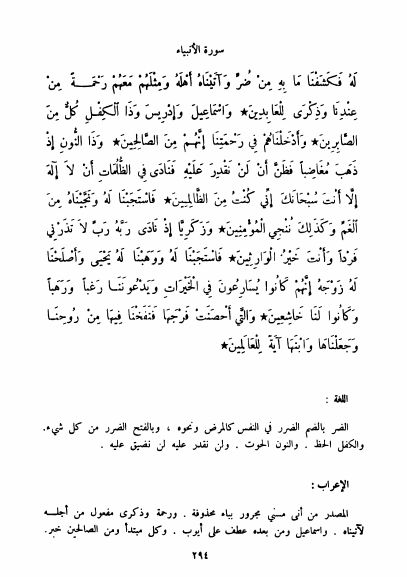 سورة الأنبياء
لَهُ فَكَشَفْنَا مَا بِهِ مِنْ ضُرٍّ وَآتَيْنَاهُ أَهْلَهُ وَمِثْلَهُمْ مَعَهُمْ رَحْمَـةً مِنْ
عِنْدِنَا وَذِكْرَى لِلْعَابِدِينَ★ وَإِسْمَاعِيلَ وَإِدْرِيسَ وَذَا الْكِفْلِ كُلٌّ مِنَ
الصَّابِرِينَ★ وَأَدْخَلْنَاهُمْ فِي رَحْمَتِنَا إِنَّهُـمْ مِنَ الصَّالِحِينَ★ وَذَا النُّونِ إِذْ
ذَهَبَ مُغَاضِباً فَظَنَّ أَنْ لَنْ نَقْدِرَ عَلَيْهِ فَنَادَى فِي الظُّلُمَاتِ أَنْ لَا إِلَهَ
إِلَّا أَنْتَ سُبْحَانَكَ إِنِّي كُنْتُ مِنَ الظَّالِمِينَ★ فَاسْتَجَبْنَا لَهُ وَنَجَّيْنَاهُ مِنَ
الْغَمِّ وَكَذَلِكَ نُنْجِي الْمُؤْمِنِينَ★ وَزَكَرِيَّا إِذْ نَادَى رَبَّهُ رَبِّ لَا تَذَرْنِي
فَرْداً وَأَنْتَ خَيْرُ الْوَارِثِينَ★ فَاسْتَجَبْنَا لَهُ وَوَهَبْنَا لَهُ يَحْيَى وَأَصْلَحْنَا
لَهُ زَوْجَهُ إِنَّهُمْ كَانُوا يُسَارِعُونَ فِي الْخَيْرَاتِ وَيَدْعُونَنَـا رَغَباً وَرَهَباً
وَكَانُوا لَنَا خَاشِعِينَ★ وَالَّتِي أَحْصَنَتْ فَرْجَهَا فَنَفَخْنَا فِيهَا مِنْ رُوحِنَـا
وَجَعَلْنَاهَا وَابْنَهَا آيَةً لِلْعَالَمِينَ★
اللغة :
الضر بالضم الضرر في النفس كالمرض ونحوه ، وبالفتح الضرر من كل شيء.
والكفل الحظ . والنون الحوت . ولن نقدر عليه لن نضيق عليه .
الإعراب :
المصدر من أني مسني مجرور بباء محذوفة . ورحمة وذكرى مفعول من أجلـه
لآتيناه . واسماعيل ومن بعده عطف على أيوب . وكل مبتدأ ومن الصالحين خبر.
٢٩٤